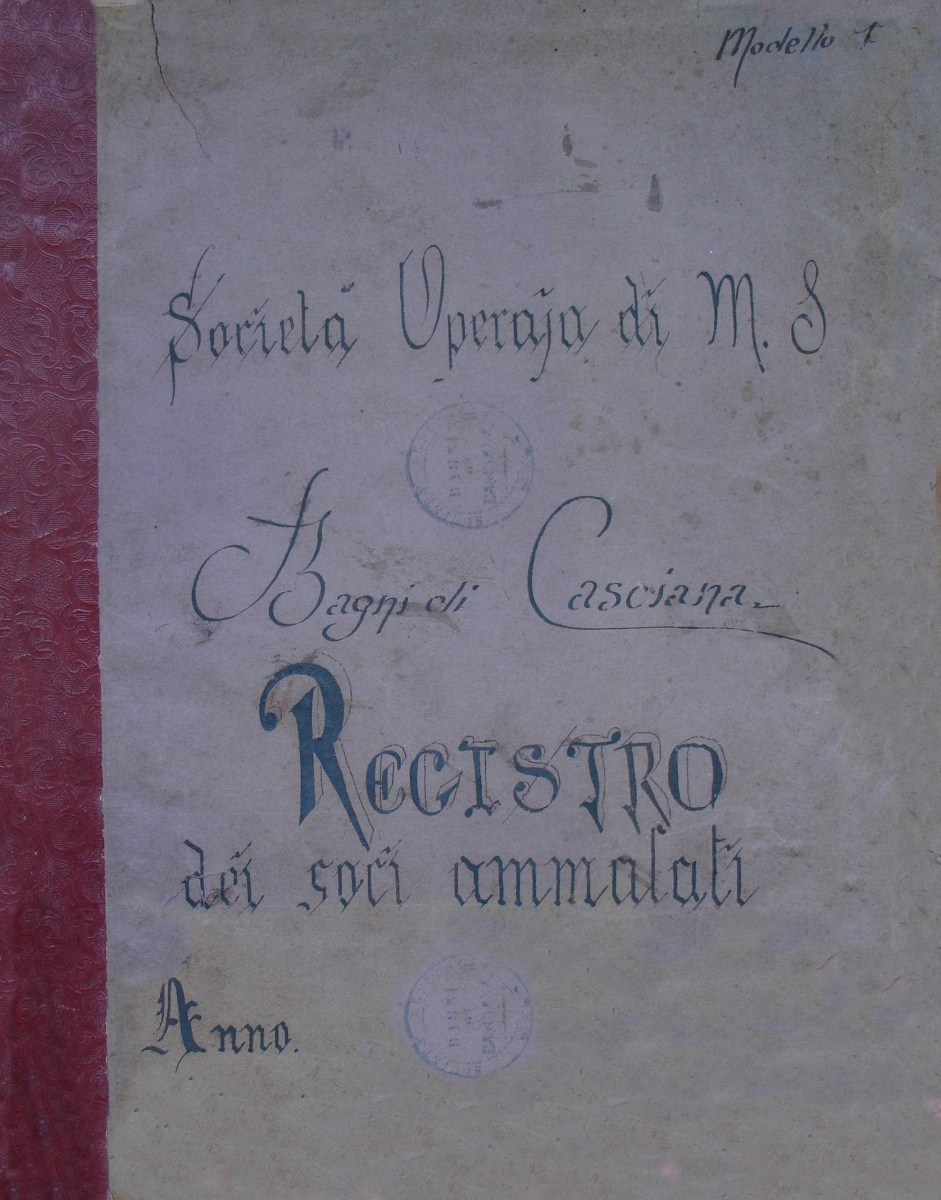 Modello 1
Società Operaja di M. S
Bagni di Casciana
REGISTRO
dei soci ammalati
Anno.
BAGNI
DI
BAGNI
DI